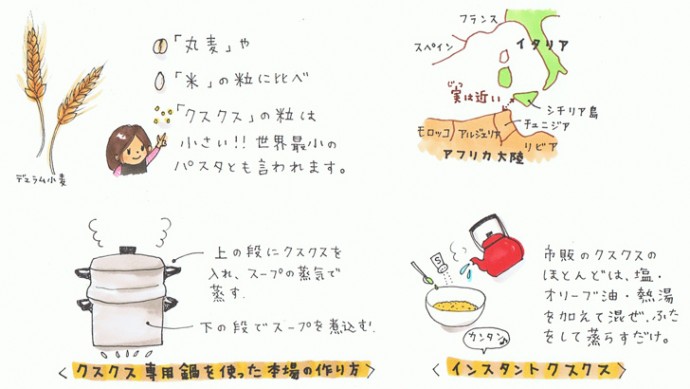 「丸麦」や
「米」の粒に比べ
「クスクス」の粒は
小さい!!世界最小の
パスタとも言われます。
デュラム小麦
フランス
スペイン
イタリア
じつ
実は近い
シチリア島
チュニジア
モロッコ
アルジェリア
リビア
アフリカ大陸
上の段にクスクスを
入れ、スープの蒸気で
蒸す.
下の段でスープを煮込む!
<クスクス専用鍋を使った本場の作り方>
市販のクスクスの
ほとんどは、塩・
オリーブ油・熱湯
を加えて混ぜ、ふた
をして蒸らすだけ。
S
カンタン
<インスタントクスクス>